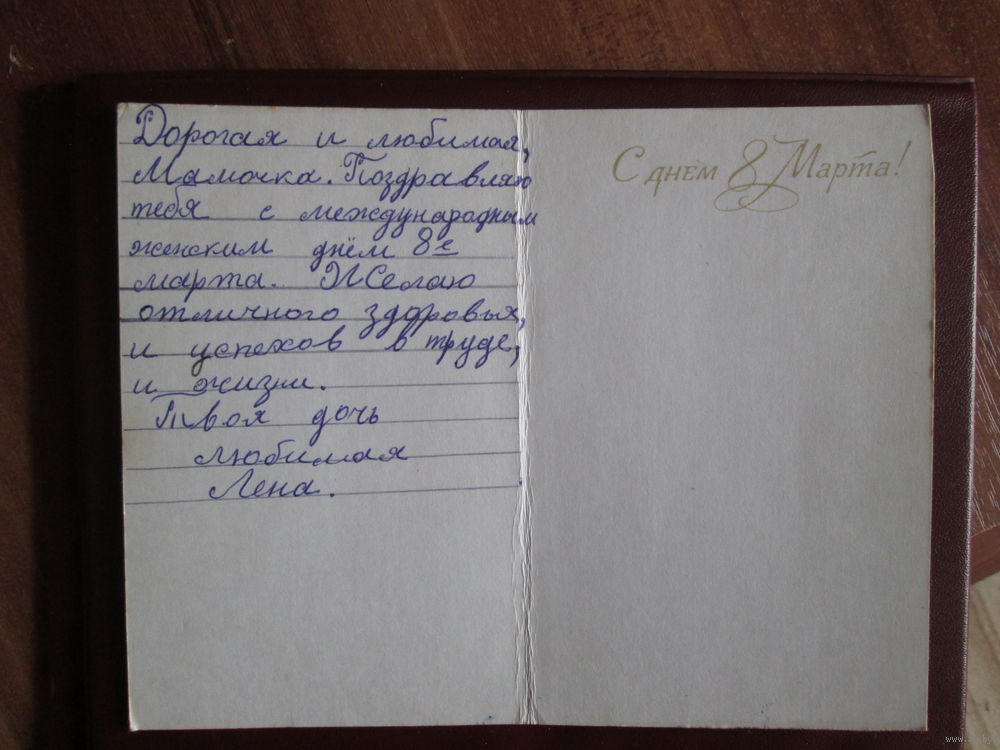 Дорогая и любимая,
Мамочка. Поздравляю
тебя с международным
женским днём 8е
марта. Желаю
отличного здоровья,
и успехов в труде,
и жизни.
Твоя дочь
любимая
Лена.
С днём 8 Марта!